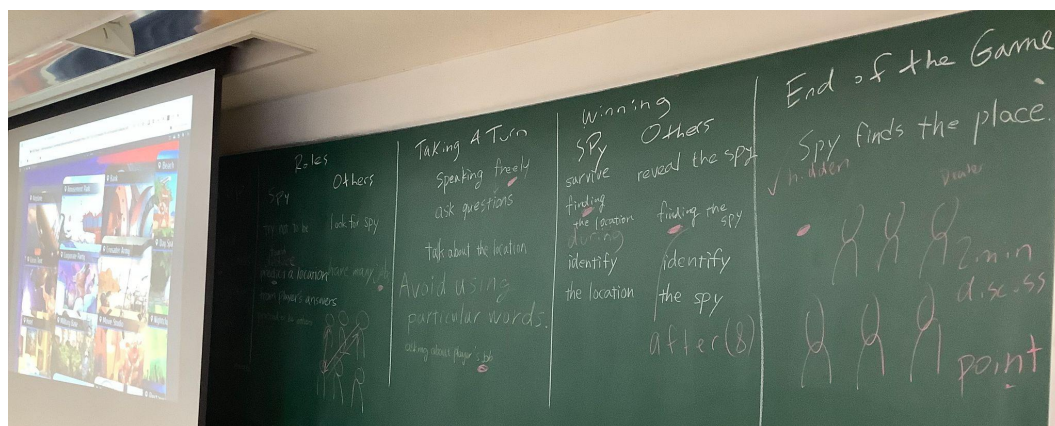 Roles
SPY
Others
try not to be
look for spy
predict a location
have many
from player's answers
Taking A Turn
speaking freely
ask questions
talk about the location
Avoid using
particular words.
asking about player's job
Winning
SPy
Others
survive
reveal the spy
finding
the location
finding the
spy
during
identify
identify
the location
the spy
after (8)
End of the Game
Spy finds the place.
hidden
2 min
discuss
point